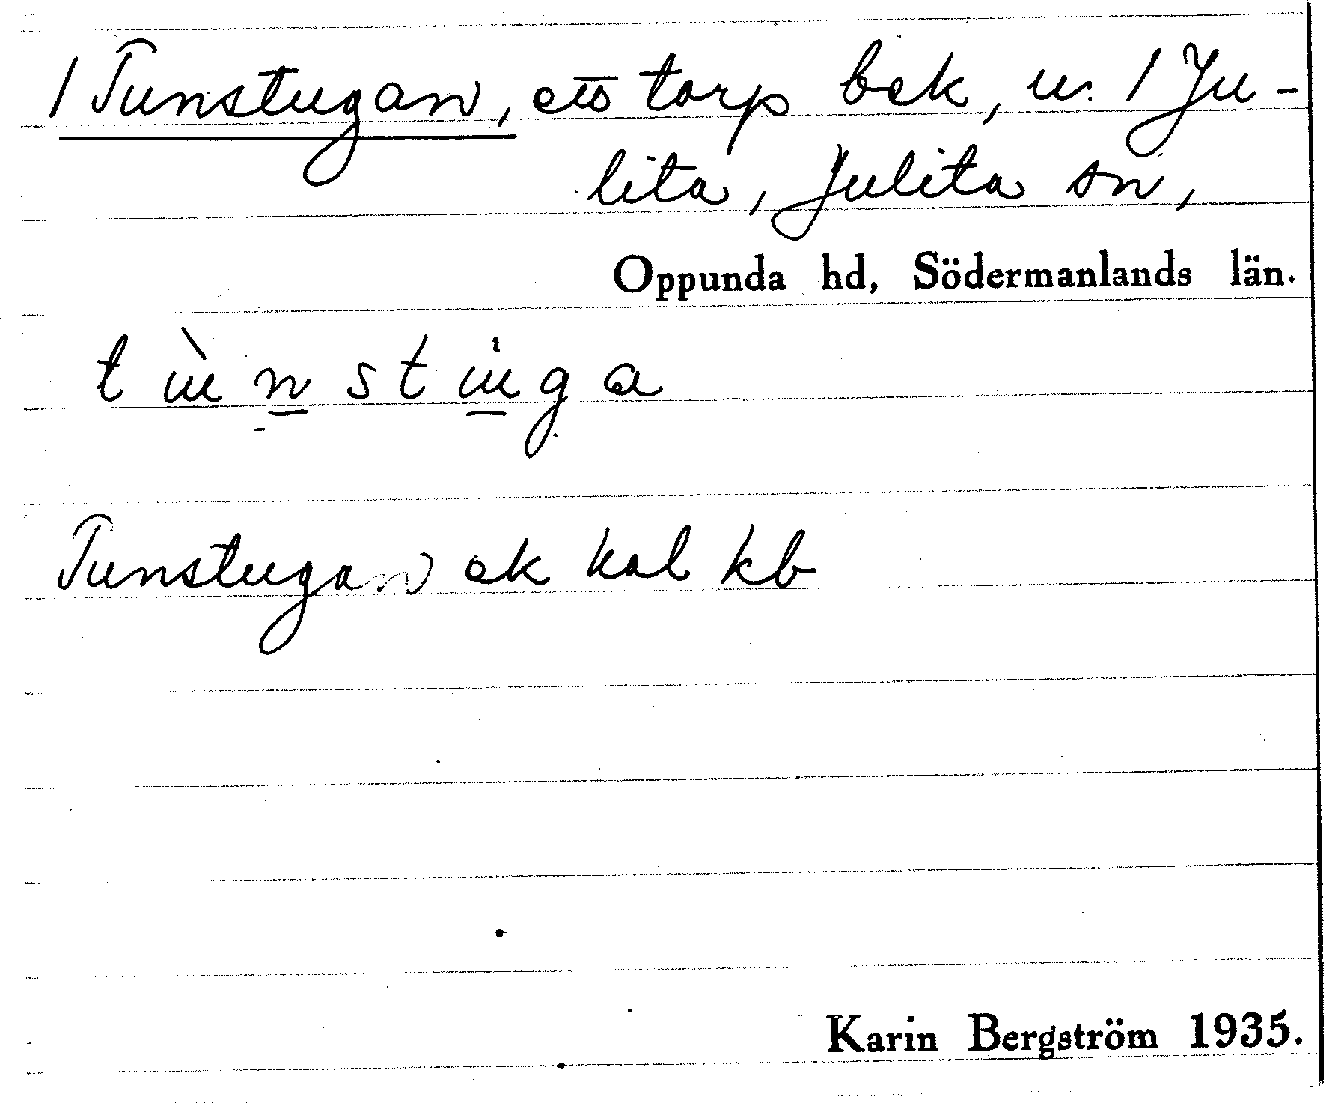 / Tunstugan, ett torp bek, u. / Ju-
lita, Julita sn,
Oppunda hd, Södermanlands län.
t ù n s t u g a
Tunstugan ek kal kb
Karin Bergström 1935.